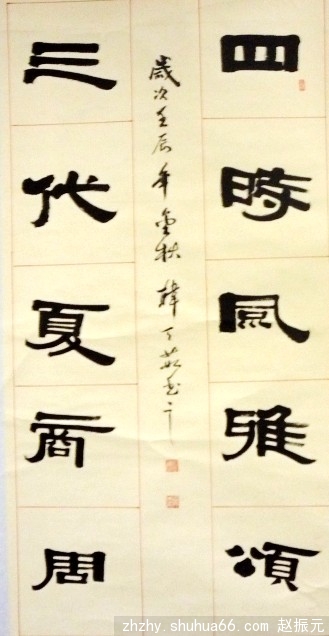 四時風雅頌
歲次壬辰年金秋韓丁茹书于
三代夏商周
zhzhy.shuhua66.com 赵振元